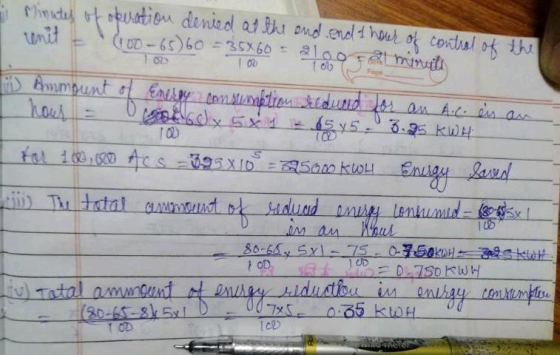 i Minutes of operation denied at the end end 1 hour of control of the
unit = (100-65)60/100 = 35x60/100 = 2100/100 = 21 minuts
ii) Ammount of Energy consumption reduced for an A.C. in an
hour = 65)x 5x1/100 = .65x5 = 3.25 KWH
For 100,000 ACs = 325x10^5 = 325000 KWH Energy Saved
(iii) The total ammount of reduced energy consumed = (80-65)5x1/100
in an hour
= 80-65x5x1/100 = 75/100 = 0.750KWH = 325KWH
= 0.750 KWH
iv) Total ammount of energy reduction in energy consumption
= (80-65-8)x5x1/100 = 7x5/100 = 0.35 KWH